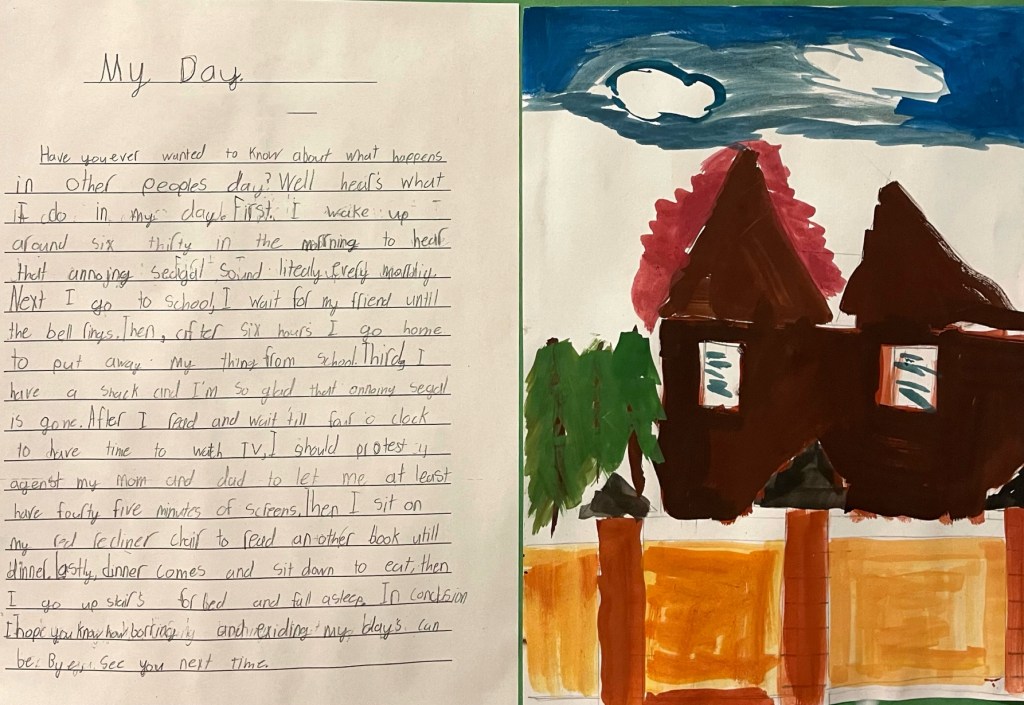 My Day.
Have you ever wanted to know about what happens
in other peoples day? Well hear's what
I do in my day. First, I wake up
around six thirty in the morning to hear
that annoing segal sound litealy every morning.
Next I go to school, I wait for my friend until
the bell rings. Then, after six hours I go home
to put away my thing from school. Third, I
have a snack and I'm so glad that annoiny segal
is gone. After I read and wait till four o clock
to have time to wath TV, I should protest
agenst my mom and dad to let me at least
have fourty five minutes of screens. Then I sit on
my red recliner chair to read an other book utill
dinner. lastly, dinner comes and sit down to eat, then
I go up stairs for bed and fall asleep. In conclsion
I hope you know how borring and exiding my days can
be. Bye, see you next time.